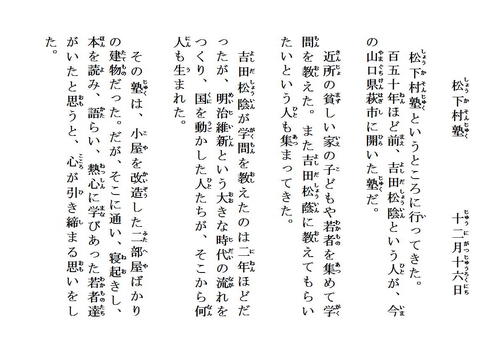 松下村塾　　　十二月十六日
松下村塾というところに行ってきた。
百五十年ほど前、吉田松陰という人が、今
の山口県萩市に開いた塾だ。
近所の貧しい家の子どもや若者を集めて学
問を教えた。また吉田松蔭に教えてもらい
たいという人も集まってきた。
吉田松陰が学問を教えたのは二年ほどだ
ったが、明治維新という大きな時代の流れを
つくり、国を動かした人たちが、そこから何
人も生まれた。
その塾は、小屋を改造した二部屋ばかり
の建物だった。だが、そこに通い、寝起きし、
本を読み、語らい、熱心に学びあった若者達
がいたと思うと、心が引き締まる思いをし
た。